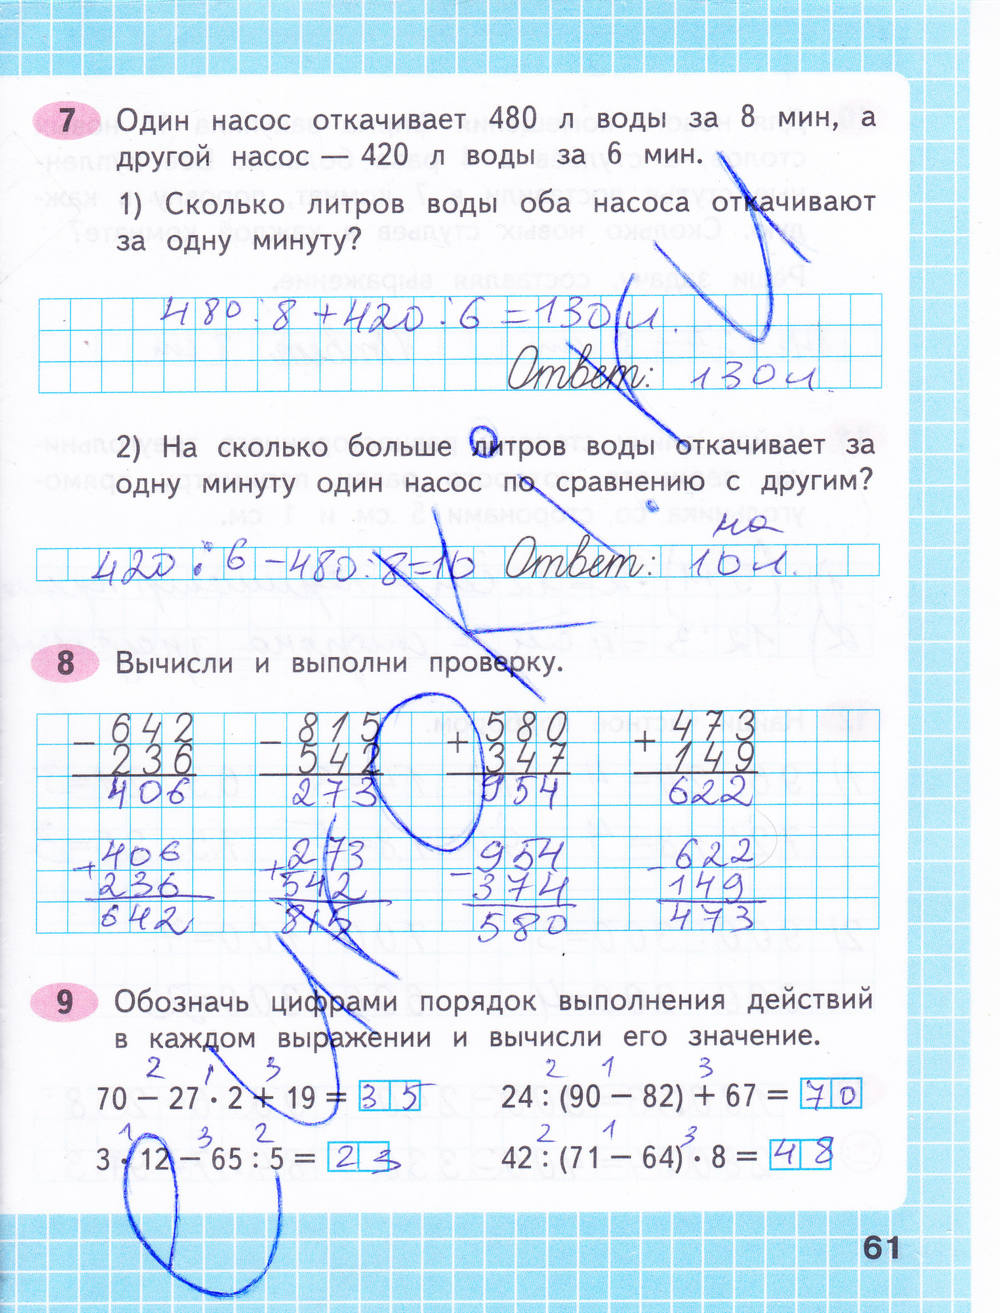 7 Один насос откачивает 480 л воды за 8 мин, а
другой насос — 420 л воды за 6 мин.
1) Сколько литров воды оба насоса откачивают
за одну минуту?
480 : 8 + 420 : 6 = 130 л.
Ответ: 130 л
2) На сколько больше литров воды откачивает за
одну минуту один насос по сравнению с другим?
на
420 : 6 - 480 : 8 = 10 Ответ: 10 л.
8 Вычисли и выполни проверку.
- 642 - 815 + 580 + 473
236 542 347 149
406 273 954 622
+ 406 + 273 - 954 - 622
236 542 374 149
642 815 580 473
9 Обозначь цифрами порядок выполнения действий
в каждом выражении и вычисли его значение.
2 1 3 2 1 3
70 − 27 · 2 + 19 = 35 24 : (90 − 82) + 67 = 70
1 3 2 2 1 3
3 · 12 − 65 : 5 = 23 42 : (71 − 64) · 8 = 48
61